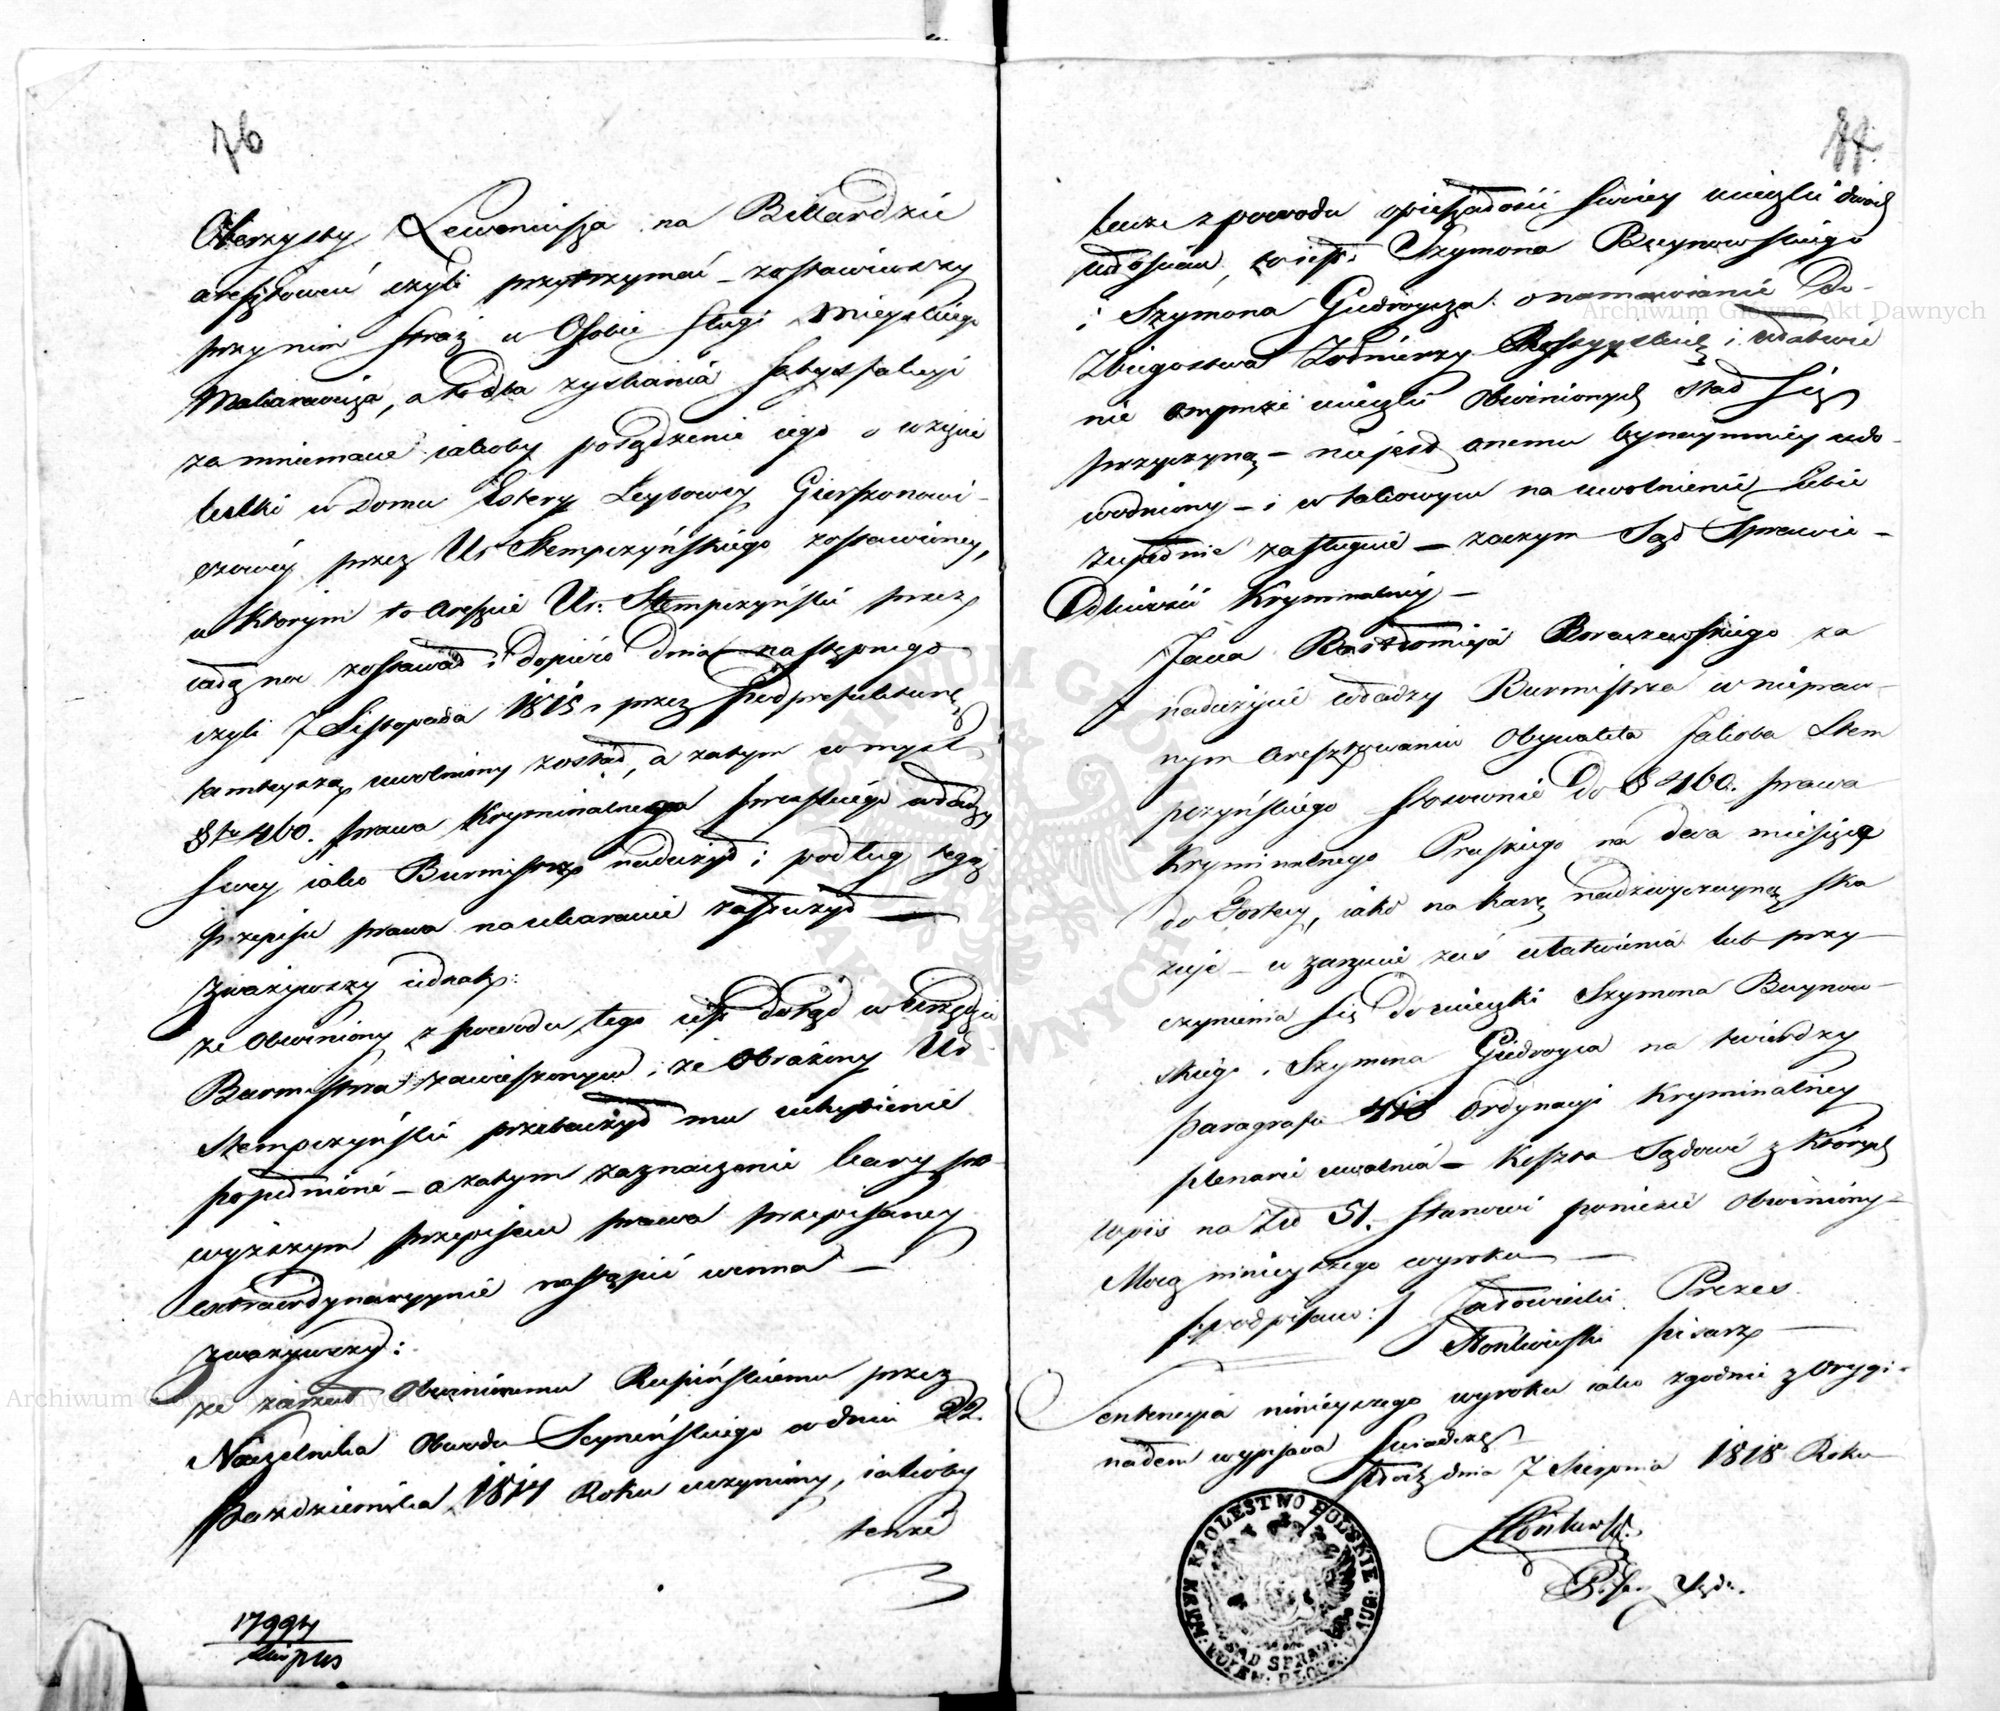 76
Oberzysty Lewoniusza na Billardzie
aresztować czyli przytrzymać – zostawiwszy
przy nim straż w Osobie sługi Mieyskiego
Makarewicza, a to dla zyskania satysfakcyi
za mniemane iakoby posądzenie iego o wzięcie
w Domu Estery Leybowey Gierszonowi-
czowéy przez Ur Stempczyńskiego zostawioney,
w którym to areszcie Ur: Stempczyński przez
noc zostawał i dopiéro dnia następnego
czyli 7 Listopada 1815 r przez Podprefekturę
tamteyszą uwolniony został, a zatym w myśl
§fu 460. prawa Kryminalnego Pruskiégo władzy
swey iako Burmistrz nadużył i podług tegoż
przepisu prawa na ukaranie zasłużył —
Zważywszy iednak:
że Obwiniony z powodu tego iest dotąd w Urzędzie
Burmistrza zawieszonym i że Obrażony Ur
Stempczyński przebaczył mu uchybienie
popełnioné – a zatym zaznaczenie kary po-
wyższym przepisem prawa przepisaney
extraordynaryynie nastąpić winna —
Zważywszy:
że zarzut Obwinionemu Rupińskiemu przez
Naczelnika Obwodu Seynéńskiego w dniu 22.
Pazdziernika 1814 Roku uczyniony, iakoby
tenże
17994
77.
tenże z powodu opieszałości swéy ucieczki dwóch
, to iest: Szymona Buynowskiégo
i Szymona Giedroycza o namawianie do
Zbiegostwa Żołnierzy Rossyyskich i ułatwie
nie ucieczki Obwinionych stał się
przyczyną – nie jest onemu bynaymniey udo-
wodniony – i w takowym na uwolnienie siebie
zupełnie zasługuie – zaczym Sąd Sprawie-
dliwości Kryminalnéy —
Jana Bartłomieja Boruszewskiego za
nadużycie władzy Burmistrza w nipraw-
nym aresztowaniu Obywatela Jakoba Stem
pczyńskiego stosownie do § 460. prawa
Kryminalnego Pruskiego na dwa miesiące
do Fortecy, iako na karę nadzwyczayną ska
zuje – w zarzucie zaś ułatwienia lub przy-
czynienia się do ucieczki Szymona Buynow-
skiégo i Szymona Giedroyca na twierdzy
paragrafu Ordynacyi Kryminalney
plenarie uwalnia – Koszta Sądowé z których
wpis na Złł 51. stanowi poniesie Obwiniony –
Mocą ninieyszego wyroku —
/:podpisano:/ Zadowiecki Prezes
Słonkowski pisarz —
Sentencya ninieyszego wyroku iako zgodnie z Orygi-
nałem wypisana świadczę
Płock dnia 7 Sierpnia 1818 Roku
Słonkowski
Pisarz Sądu.
KROLESTWO POLSKIE
SĄD SPRAW:
KRYM: WOIEW: PŁOCK: I AUG:
ARCHIWUM GŁÓWNE AKT DAWNYCH
Archiwum Główne Akt Dawnych
Archiwum Główne Akt Dawnych